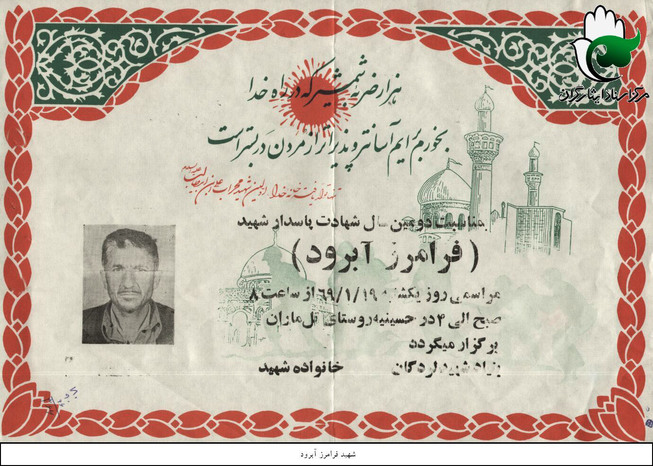 مرکز اسناد ایثارگران
هزار ضربه شمشیر که در راه خدا
بخورم برایم آسانتر و پذیراتر از مردن در بستر است
بمناسبت دومین سال شهادت پاسدار شهید
( فرامرز آبرود )
مراسمی روز یکشنبه ۶۹/۱/۱۹ از ساعت ۸
صبح الی ۴ در حسینیه روستای تل‌ماران
برگزار میگردد
بنیاد شهید لردگان خانواده شهید
شهید فرامرز آبرود